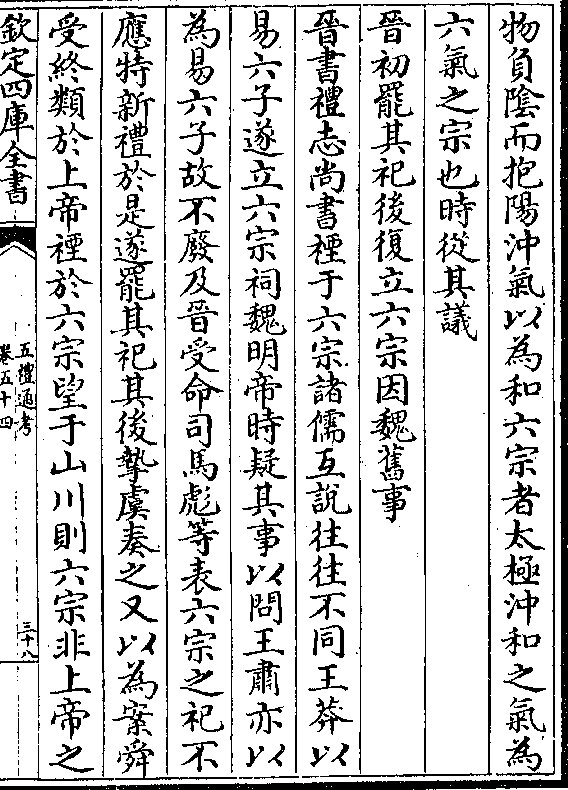 物負陰而抱陽沖氣以為和六宗者太極沖和之氣為
六氣之宗也時從其議
晉初罷其祀後復立六宗因魏舊事
晉書禮志尚書禋于六宗諸儒互說往往不同王莽以
易六子遂立六宗祠魏明帝時疑其事以問王肅亦以
為易六子故不廢及晉受命司馬彪等表六宗之祀不
應特新禮於是遂罷其祀其後摯虞奏之又以為案舜
受終類於上帝禋於六宗望于山川則六宗非上帝之
欽定四庫全書
五禮通考
卷五十四
三十八